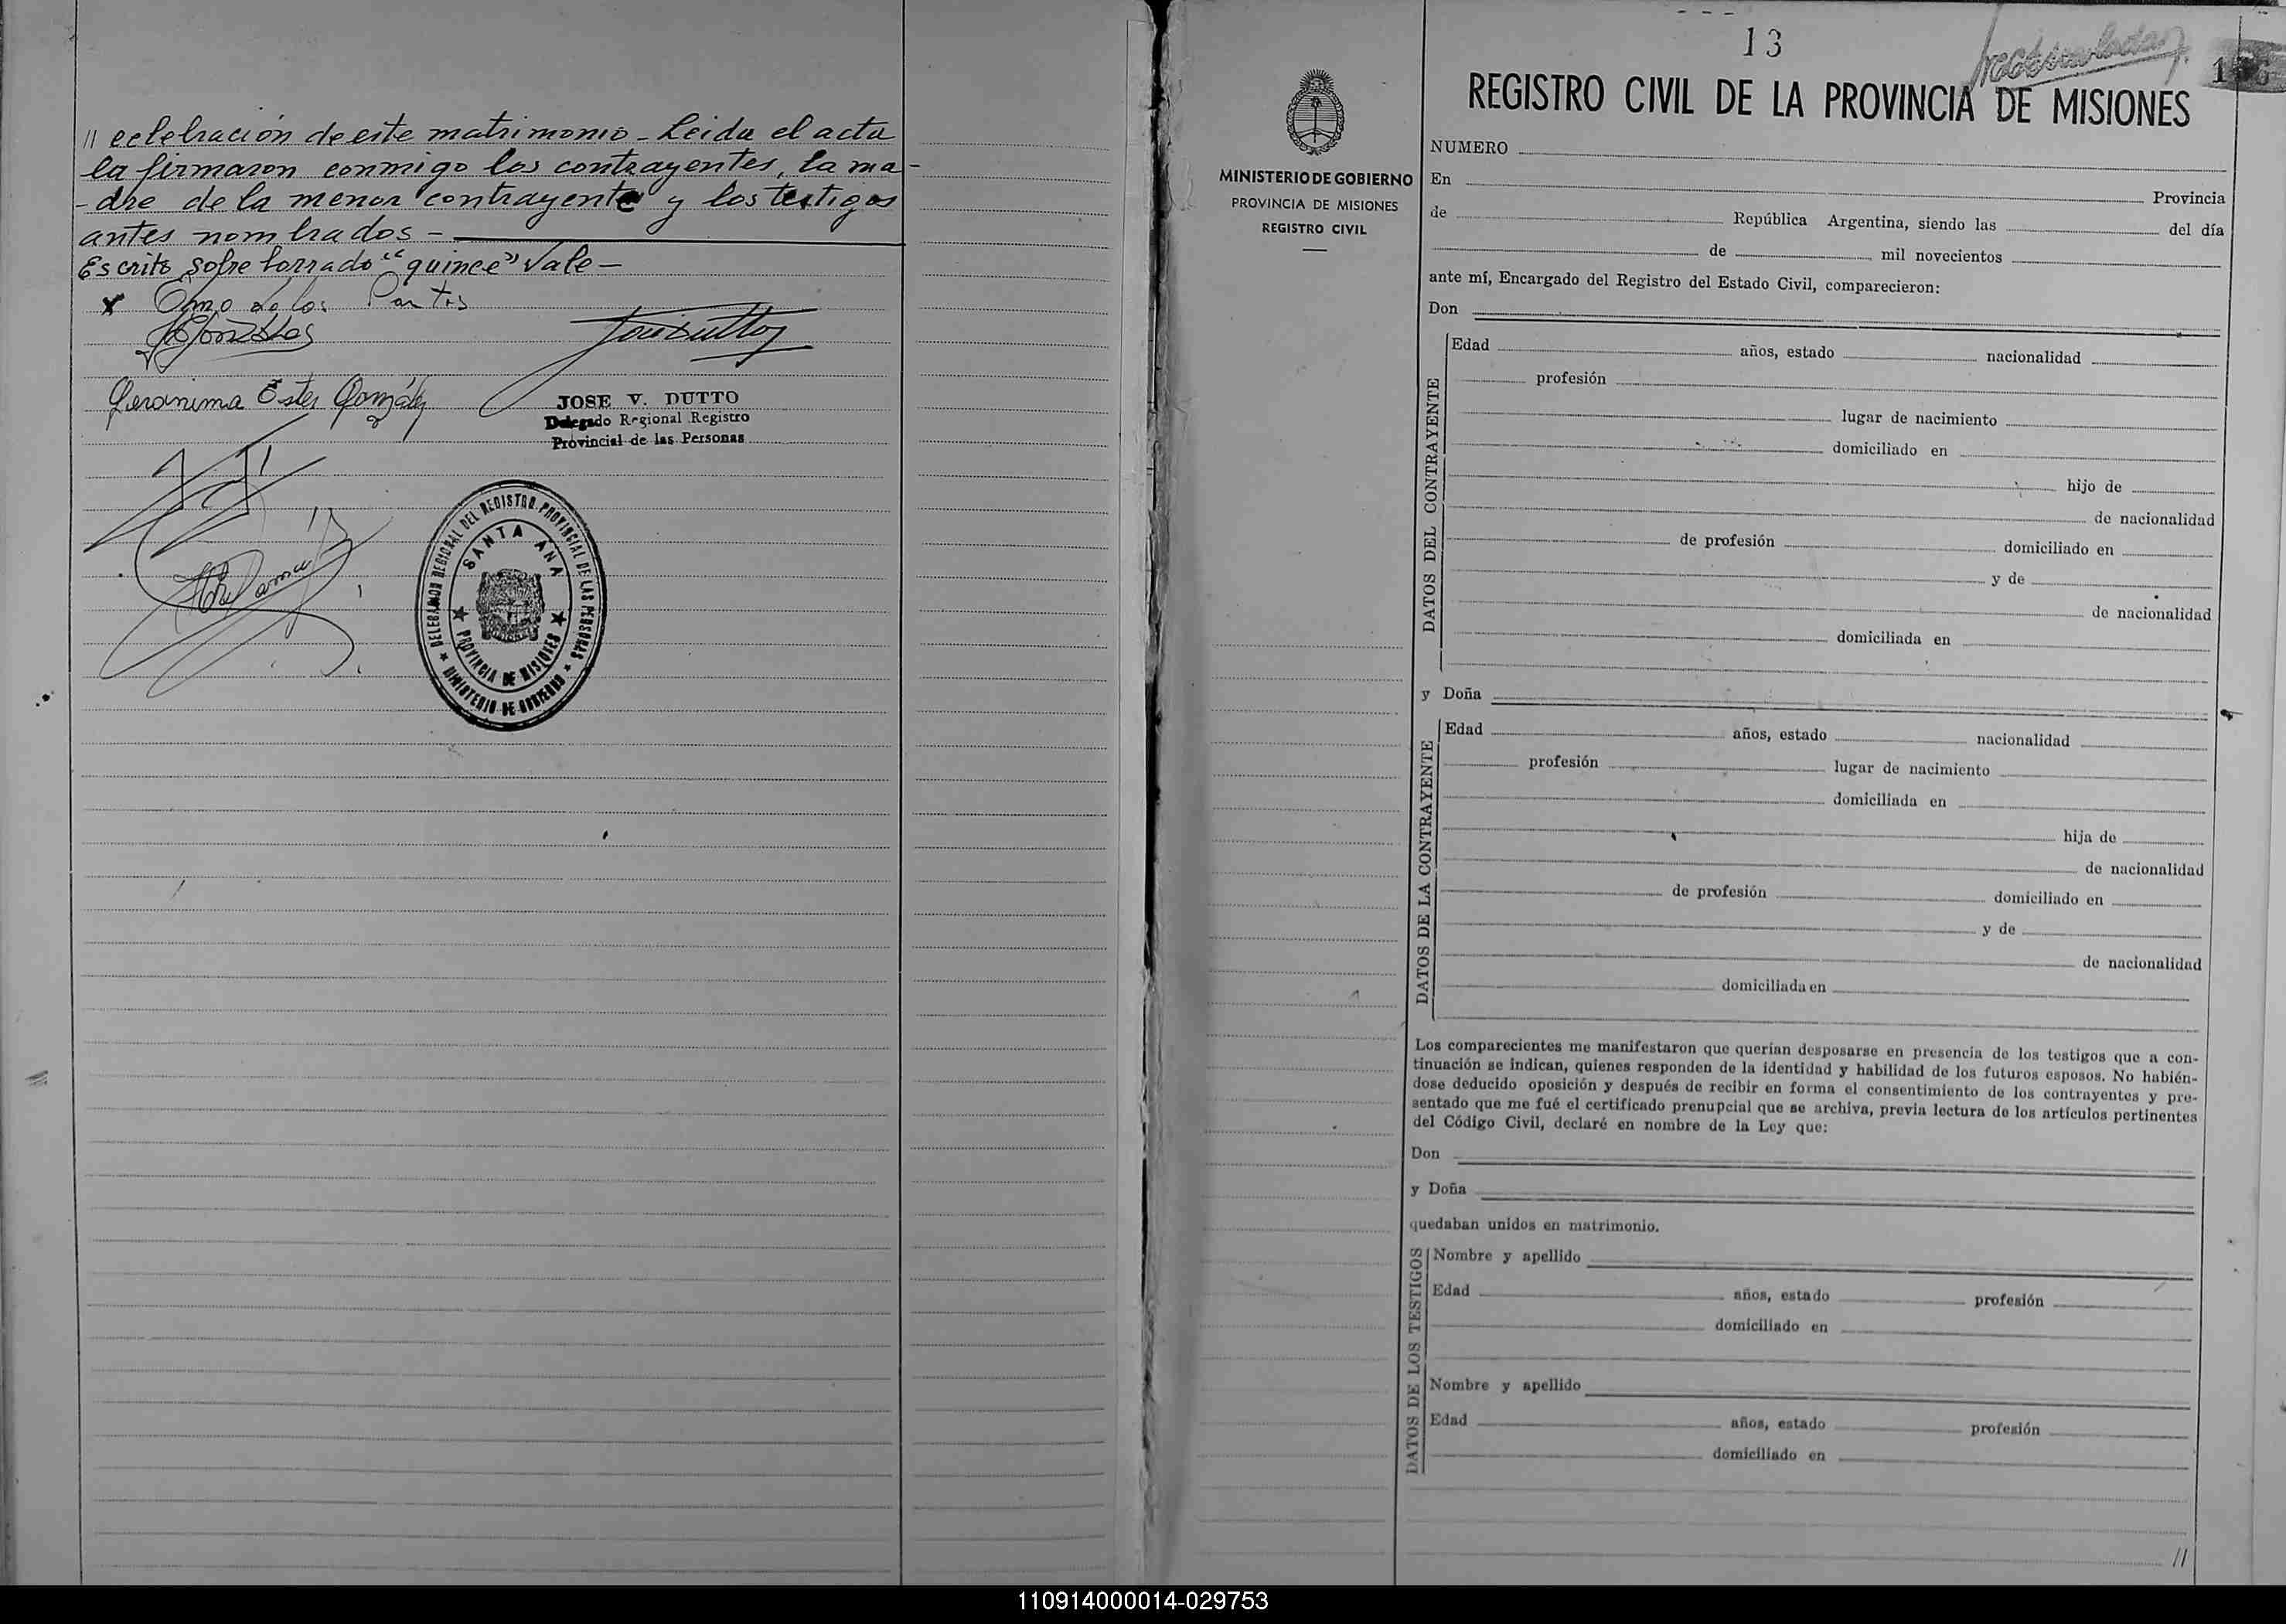 // celebración de este matrimonio - Leida el acta
la firmaron conmigo los contrayentes, la ma-
- dre de la menor contrayente y los testigos
antes nombrados -
Escrito sobre borrado "quince" Vale -
x
Gonzales
Geronima Ester González
JOSE V. DUTTO
Delegado Regional Registro
Provincial de las Personas
DELEGACION REGIONAL DEL REGISTRO PROVINCIAL DE LAS PERSONAS
SANTA ANA
PROVINCIA DE MISIONES
MINISTERIO DE GOBIERNO
13
REGISTRO CIVIL DE LA PROVINCIA DE MISIONES
MINISTERIO DE GOBIERNO
PROVINCIA DE MISIONES
REGISTRO CIVIL
NUMERO
En Provincia
de República Argentina, siendo las del día
de mil novecientos
ante mí, Encargado del Registro del Estado Civil, comparecieron:
Don
DATOS DEL CONTRAYENTE
Edad años, estado nacionalidad
profesión
lugar de nacimiento
domiciliado en
hijo de
de nacionalidad
de profesión domiciliado en
y de
de nacionalidad
domiciliada en
y Doña
DATOS DE LA CONTRAYENTE
Edad años, estado nacionalidad
profesión lugar de nacimiento
domiciliada en
hija de
de nacionalidad
de profesión domiciliado en
y de
de nacionalidad
domiciliada en
Los comparecientes me manifestaron que querían desposarse en presencia de los testigos que a con-
tinuación se indican, quienes responden de la identidad y habilidad de los futuros esposos. No habién-
dose deducido oposición y después de recibir en forma el consentimiento de los contrayentes y pre-
sentado que me fué el certificado prenupcial que se archiva, previa lectura de los artículos pertinentes
del Código Civil, declaré en nombre de la Ley que:
Don
y Doña
quedaban unidos en matrimonio.
DATOS DE LOS TESTIGOS
Nombre y apellido
Edad años, estado profesión
domiciliado en
Nombre y apellido
Edad años, estado profesión
domiciliado en
//
110914000014-029753